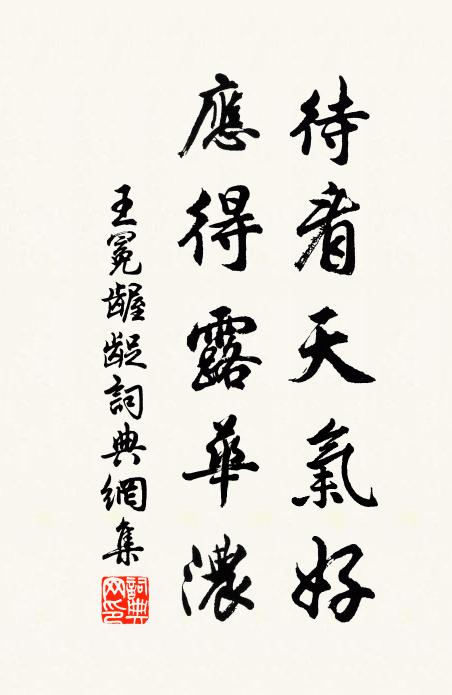 待看天氣好
應得露華濃
王冕齷齪詞典網集
詞典網印